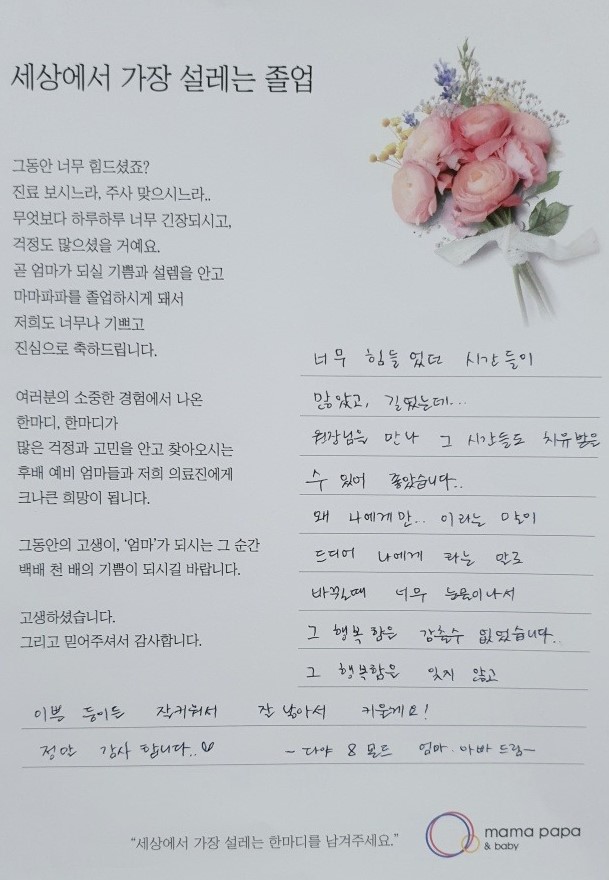 세상에서 가장 설레는 졸업
그동안 너무 힘드셨죠?
진료 보시느라, 주사 맞으시느라..
무엇보다 하루하루 너무 긴장되시고,
걱정도 많으셨을 거예요.
곧 엄마가 되실 기쁨과 설렘을 안고
마마파파를 졸업하시게 돼서
저희도 너무나 기쁘고
진심으로 축하드립니다.
여러분의 소중한 경험에서 나온
한마디, 한마디가
많은 걱정과 고민을 안고 찾아오시는
후배 예비 엄마들과 저희 의료진에게
크나큰 희망이 됩니다.
그동안의 고생이, '엄마'가 되시는 그 순간
백배 천 배의 기쁨이 되시길 바랍니다.
고생하셨습니다.
그리고 믿어주셔서 감사합니다.
너무 힘들었던 시간들이
많았고, 길었는데...
원장님을 만나 그 시간들도 치유받을
수 있어 좋았습니다..
왜 나에게만.. 이라는 말이
드디어 나에게 라는 말로
바뀔때 너무 눈물이나서
그 행복함은 감출수 없었습니다..
그 행복함을 잊지 않고
이쁜 둥이들 잘키워서 잘 낳아서 키울게요!
정말 감사 합니다..♡ ~다야 & 몰드 엄마·아빠 드림~
"세상에서 가장 설레는 한마디를 남겨주세요."
mama papa
& baby